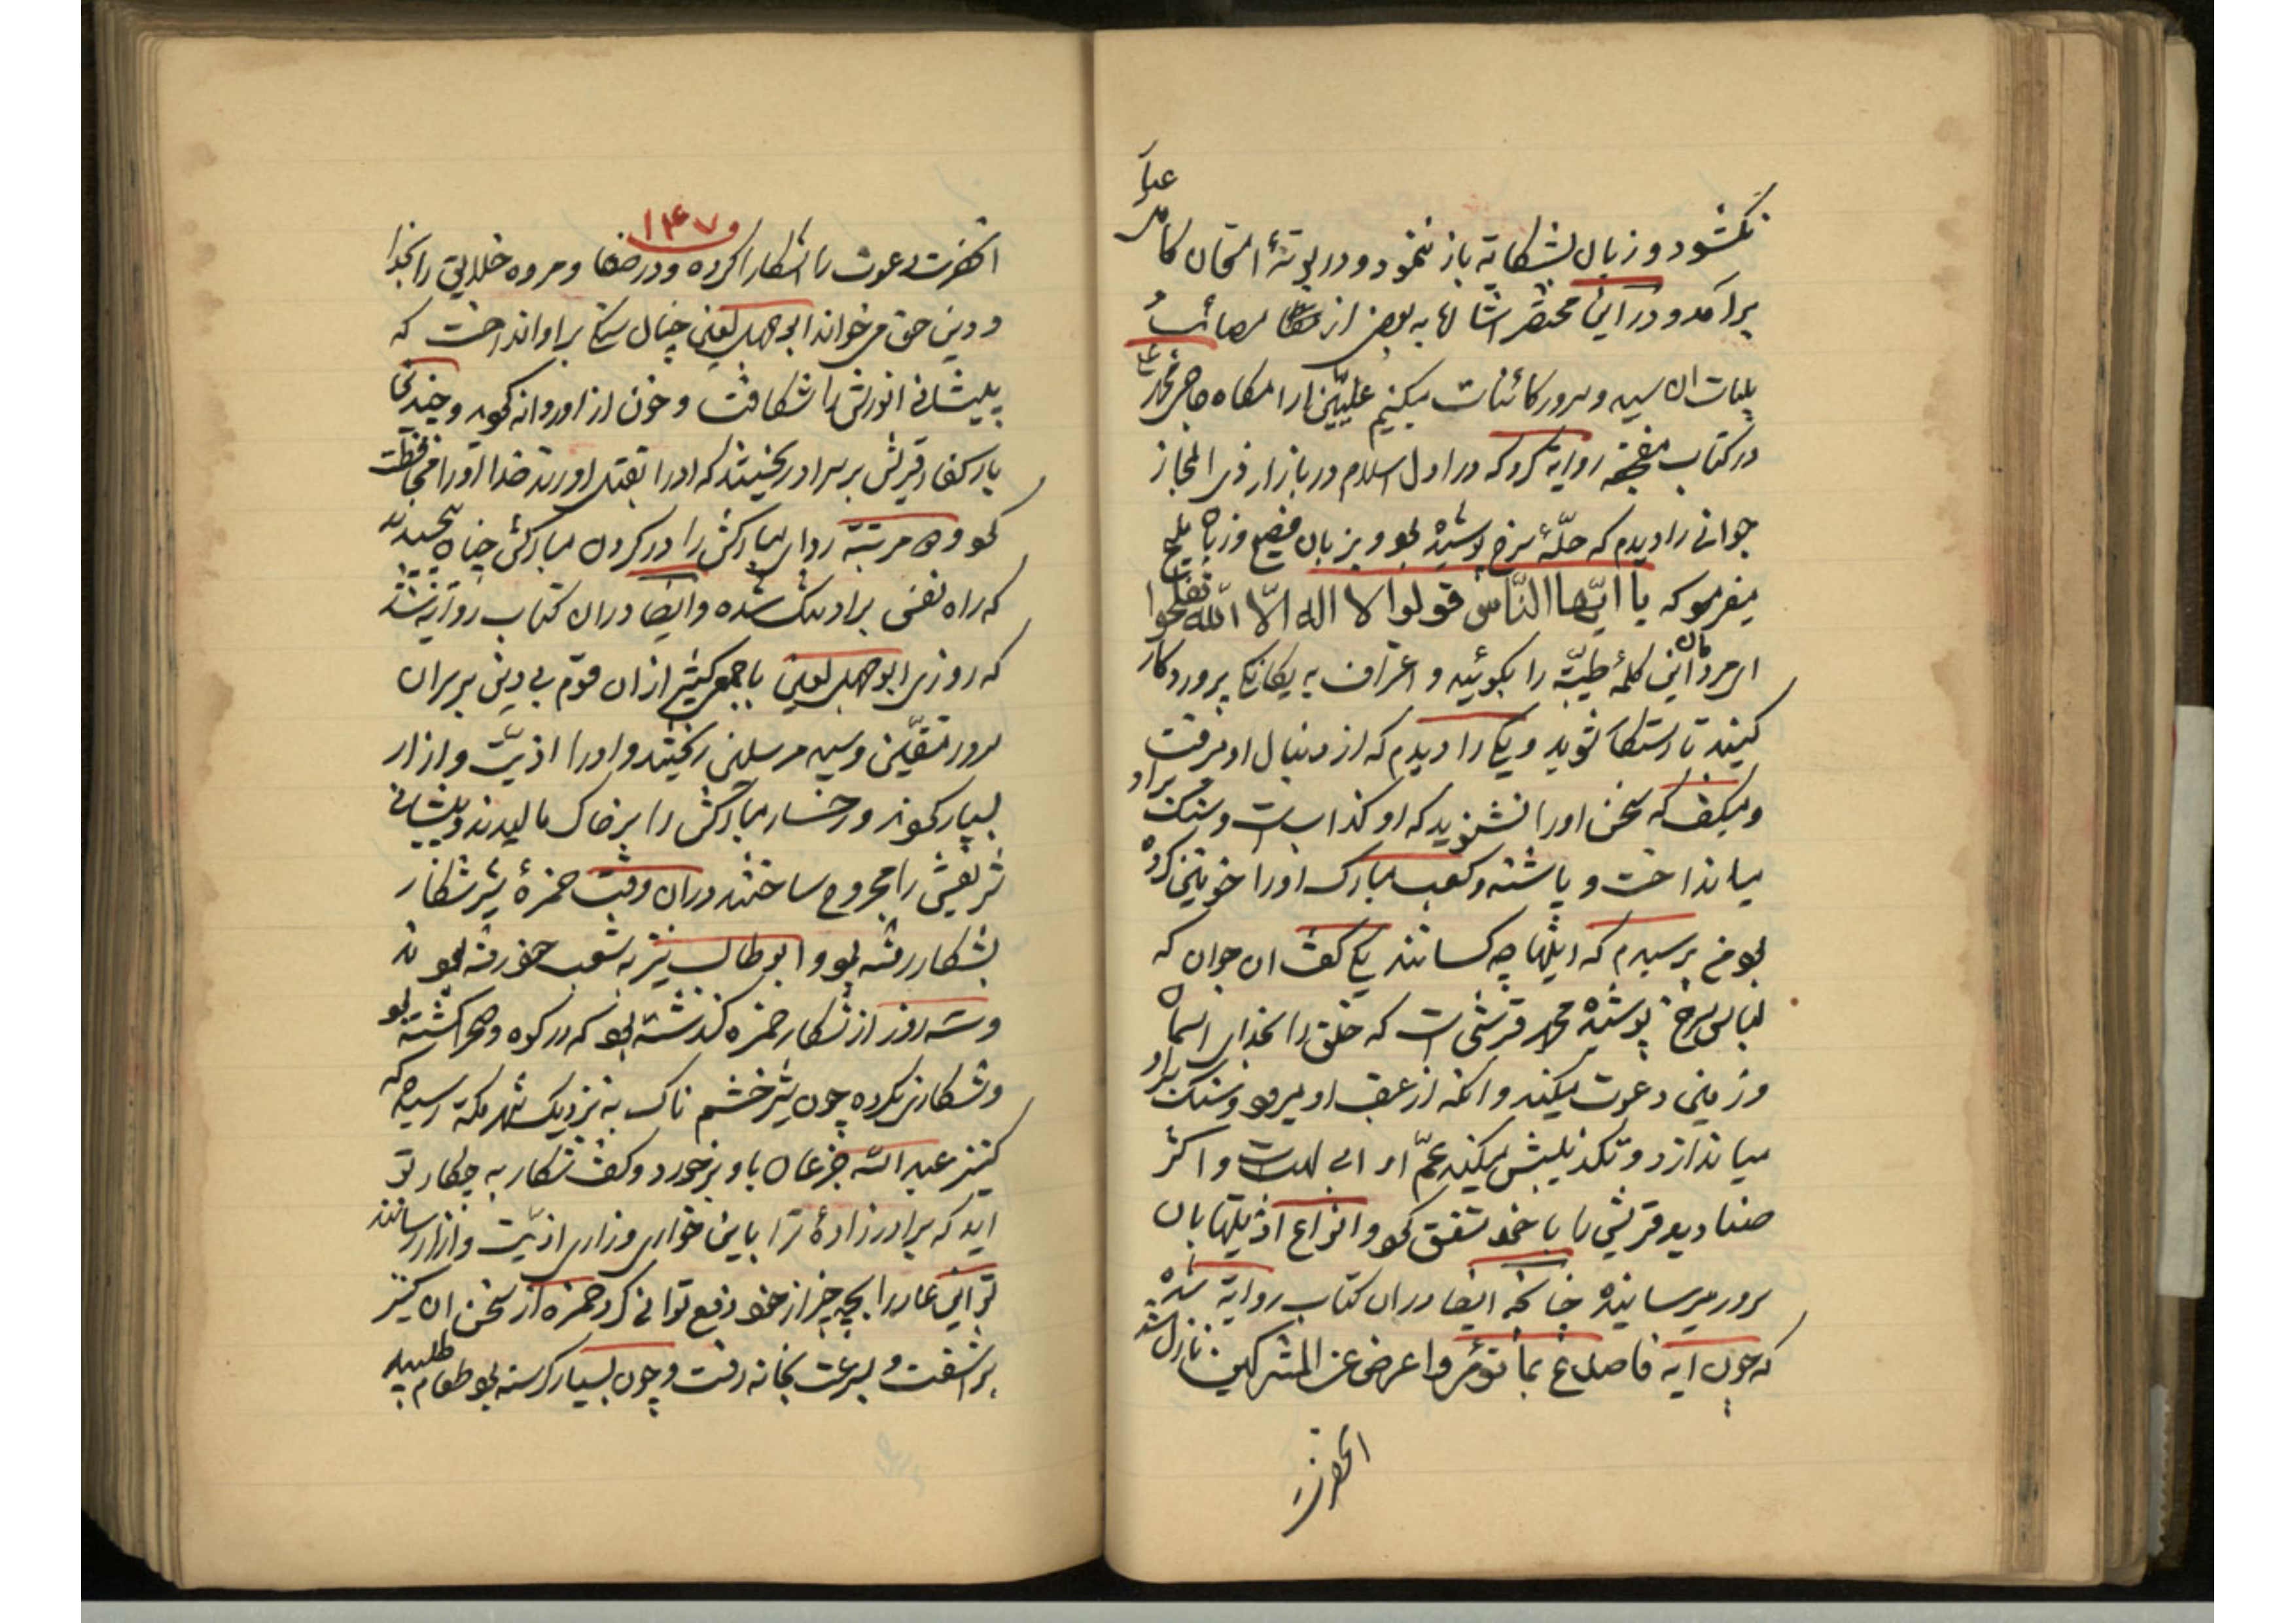 نکشود و زبان بشکایة باز ننمود و در بوتهٔ امتحان کامل عیار
برامد و در این مختصر اشارها به بعض از مصائب و
بلیات ان سید و سرور کائنات میکنیم
در کتاب روایة کرده که در اول اسلام در بازار ذی المجاز
جوانی را دیدم که حلّهٔ سرخ پوشیده بود و بزبان فصیح و زبان ملیح
میفرمود که یا ایّها النّاس قولوا لا اله الّا اللّه تفلحوا
ای مردمان این کلمهٔ طیّبه را بگوئید و اعتراف به یکانکی پروردکار
کنید تا رستکار شوید و یکی را دیدم که از دنبال او میرفت
و میکفت که سخن اورا نشنوید که او کذابست و سنک بر او
میانداخت و پاشنه و کعب مبارک اورا خونین کرده
بود من پرسیدم که اینها چه کسانند یکی کفت ان جوان که
لباس سرخ پوشیده محمد قرشی است که خلق را بخدای اسمان
و زمین دعوت میکند و انکه از عقب او میرود و سنک بر او
میاندازد و تکذیبش میکند عمّ او ابی لهب است و اکثر
صنادید قریش با خود متفق کرد و انواع اذیتها بان
سرور میرسانیده چنانچه ایضا در ان کتاب روایة شده
که چون ایه فاصدع بما تؤمر و اعرض عن المشرکین نازل شد
انحضرت
۱۴۷
انحضرت دعوت را اشکارا کرده و در صفا و مروه خلایق را بخدا
و دین حق میخواند ابوجهل لعین چنان سنکی بر او انداخت که
پیشانی انورش را شکافت و خون از او روانه کردید و چندین
بار کفار قریش بر سر او ریختند که اورا بقتل اورند خدا اورا محافظت
کرد و مرتبه ردای مبارکش را در کردن مبارکش چنان پیچیدند
که راه نفس بر او تنک شده و ایضا در ان کتاب روایة شده
که روزی ابوجهل لعین با جمع کثیر از ان قوم بی دین بر سر ان
سرور متقین و سید مرسلین ریختند و اورا اذیّت و ازار
بسیار کردند و رخسار مبارکش را بر خاک مالیدند و پیشانی
شریفش را مجروح ساختند در ان وقت حمزهٔ شیر شکار
بشکار رفته بود و ابوطالب نیز به شعب خود رفته بودند
و سه روز از شکار حمزه کذشته بود که در کوه و صحرا کشته بود
و شکار نکرده چون شیر خشم ناک به نزدیک شهر مکه رسید که
کنیز عبد الله جزعان باو برخورد و کفت شکار به چکار تو
اید که برادر زادهٔ ترا باین خواری و زاری اذیّت و ازار رسانند
تو این عار را بچه چیز از خود دفع توانی کرد حمزه از سخن ان کنیز
براشفت و بسرعت بخانه رفت و چون بسیار کرسنه بود طعام طلبید